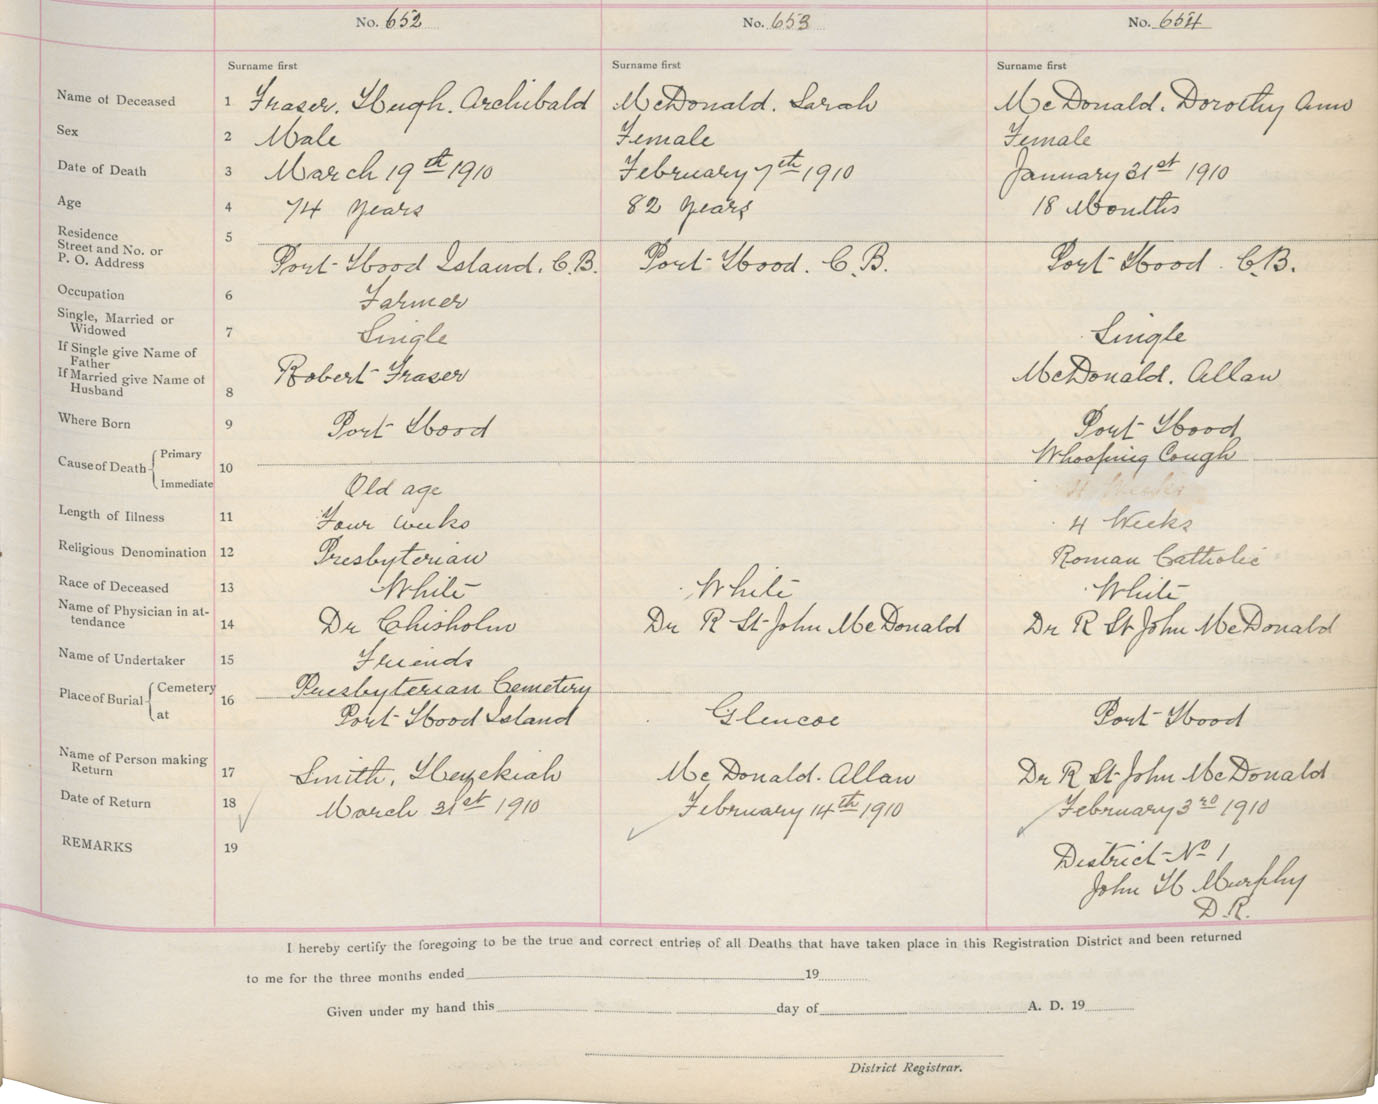 No. 652 No. 653 No. 654
Surname first Surname first Surname first
Name of Deceased 1 Fraser, Hugh. Archibald McDonald. Sarah McDonald. Dorothy Ann
Sex 2 Male Female Female
Date of Death 3 March 19th 1910 February 7th 1910 January 31st 1910
Age 4 74 years 82 years 18 Months
Residence 5
Street and No. or
P. O. Address Port Hood Island. C.B. Port Hood. C.B. Port Hood. C.B.
Occupation 6 Farmer
Single, Married or
Widowed 7 Single Single
If Single give Name of
Father
If Married give Name of
Husband 8 Robert Fraser McDonald. Allan
Where Born 9 Port Hood Port Hood
Cause of Death 10 Primary Whooping Cough
Immediate Old age 4 Weeks
Length of Illness 11 Four weeks 4 Weeks
Religious Denomination 12 Presbyterian Roman Catholic
Race of Deceased 13 White White White
Name of Physician in at-
tendance 14 Dr Chisholm Dr R St John McDonald Dr R St John McDonald
Name of Undertaker 15 Friends
Place of Burial 16 Cemetery Presbyterian Cemetery
at Port Hood Island Glencoe Port Hood
Name of Person making
Return 17 Smith, Hezekiah McDonald. Allan Dr R St John McDonald
Date of Return 18 March 31st 1910 February 14th 1910 February 3rd 1910
REMARKS 19 District No 1
John H Murphy
D.R.
I hereby certify the foregoing to be the true and correct entries of all Deaths that have taken place in this Registration District and been returned
to me for the three months ended 19
Given under my hand this day of A. D. 19
District Registrar.